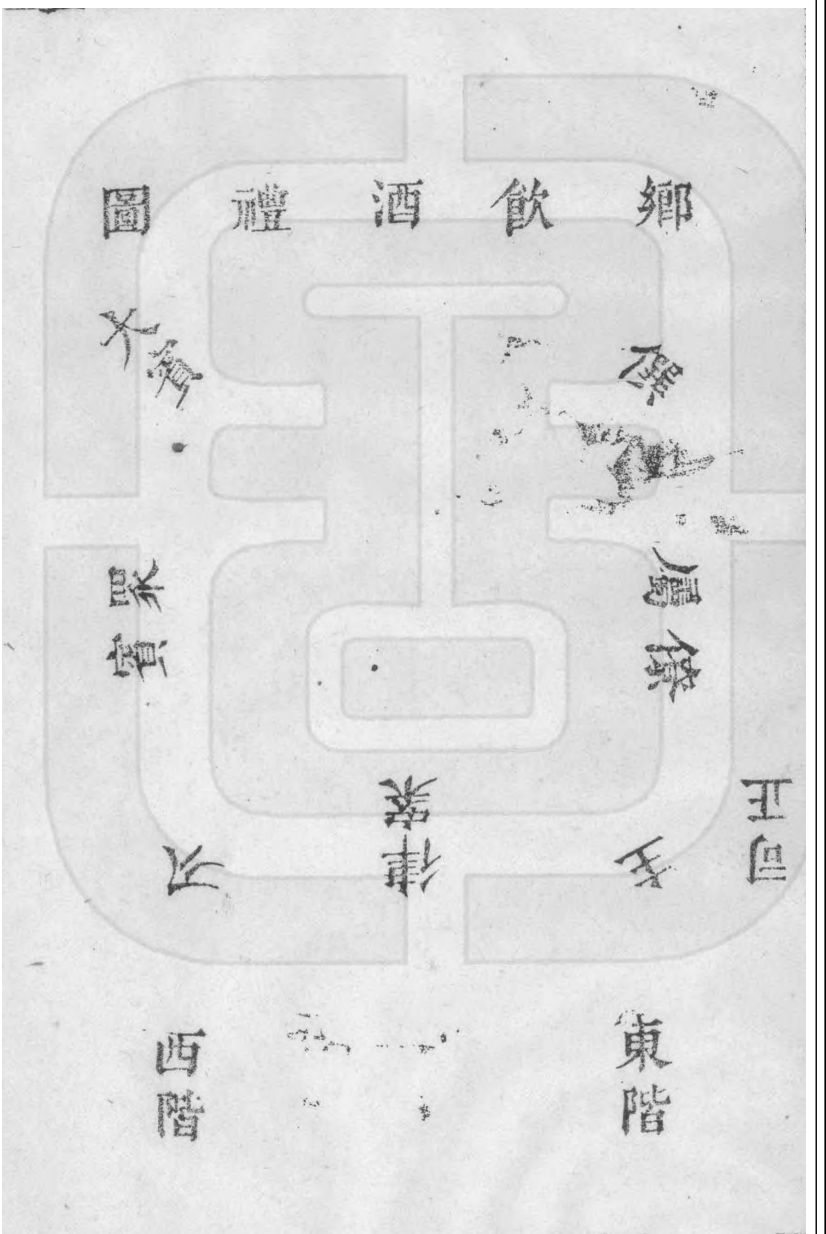 鄉飲酒禮圖
僎
大賓
僚屬
眾賓
司正
主
律案
介
東階
西階